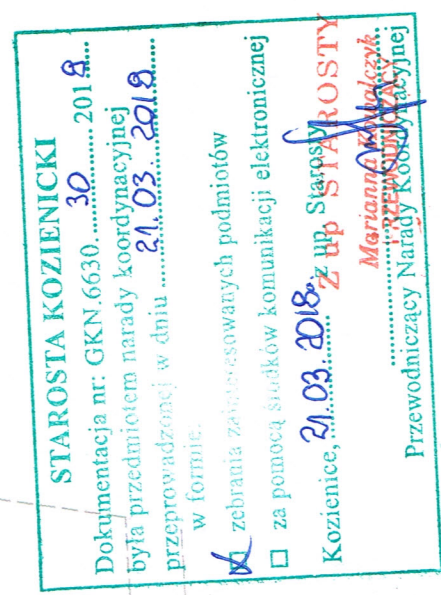 STAROSTA KOZIENICKI
Dokumentacja nr: GKN.6630. 30 2018
była przedmiotem narady koordynacyjnej
przeprowadzonej w dniu 21.03. 2018
w formie:
zebrania zainteresowanych podmiotów
za pomocą środków komunikacji elektronicznej
Kozienice, 21.03. 2018. z up. Starosty
Z up STAROSTY
Marianna Kowalczyk
PRZEWODNICZĄCY
Przewodniczący Narady Koordynacyjnej